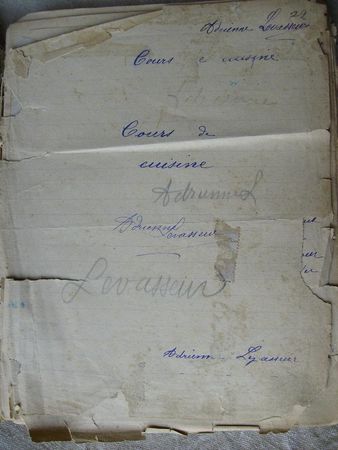 Adrienne Levasseur
Cours e cuisine
Cours de
cuisine
Adrienne L
Adrienne
Levasseur
Levasseur
Adrienne Levasseur